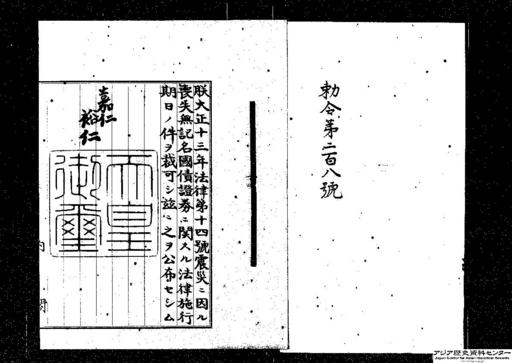 勅令第二百八號
朕大正十三年法律第十四號震災ニ因ル
喪失無記名國債證券ニ関スル法律施行
期日ノ件ヲ裁可シ茲ニ之ヲ公布セシム
嘉仁
裕仁
天皇
御璽
内閣
アジア歴史資料センター
Japan Center for Asian Historical Records